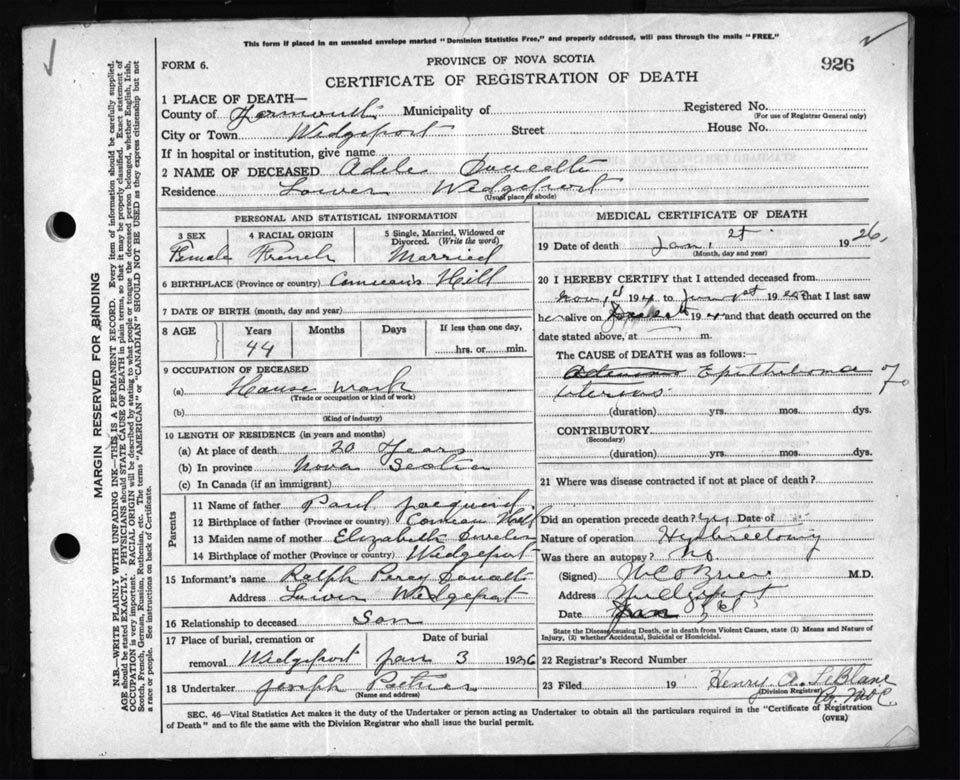 This form if placed in an unsealed envelope marked "Dominion Statistics Free," and properly addressed, will pass through the mails "FREE."
PROVINCE OF NOVA SCOTIA
FORM 6.
CERTIFICATE OF REGISTRATION OF DEATH
926
1 PLACE OF DEATH—
County of Yarmouth Municipality of Registered No.
(For use of Registrar General only)
City or Town Wedgeport Street House No.
If in hospital or institution, give name
2 NAME OF DECEASED Adele Doucette
Residence Lower Wedgeport
(Usual place of abode)
PERSONAL AND STATISTICAL INFORMATION
3 SEX 4 RACIAL ORIGIN 5 Single, Married, Widowed or Divorced. (Write the word)
Female French Married
6 BIRTHPLACE (Province or country) Comeau's Hill
7 DATE OF BIRTH (month, day and year)
8 AGE Years Months Days If less than one day,
44 hrs. or min.
9 OCCUPATION OF DECEASED
(a) House work
(Trade or occupation or kind of work)
(b)
(Kind of industry)
10 LENGTH OF RESIDENCE (in years and months)
(a) At place of death 20 Years
(b) In province Nova Scotia
(c) In Canada (if an immigrant)
Parents
11 Name of father Paul Jacquard
12 Birthplace of father (Province or country) Comeau Hill
13 Maiden name of mother Elizabeth
14 Birthplace of mother (Province or country) Wedgeport
15 Informant's name Ralph Percy Doucette
Address Lower Wedgeport
16 Relationship to deceased Son
17 Place of burial, cremation or Date of burial
removal Wedgeport Jan 3 1926
18 Undertaker Joseph
(Name and address)
MEDICAL CERTIFICATE OF DEATH
19 Date of death Jan. 1926.
(Month, day and year)
20 I HEREBY CERTIFY that I attended deceased from
19 to 19 that I last saw
her alive on 19 and that death occurred on the
date stated above, at m.
The CAUSE of DEATH was as follows:
Epithelioma
Uterus
(duration) yrs. mos. dys.
CONTRIBUTORY
(Secondary)
(duration) yrs. mos. dys.
21 Where was disease contracted if not at place of death?
Did an operation precede death? yes Date of
Nature of operation Hysterectomy
Was there an autopsy? No
(Signed) O'Brien M.D.
Address
Date Jan
State the Disease causing Death, or in death from Violent Causes, state (1) Means and Nature of
Injury, (2) whether Accidental, Suicidal or Homicidal.
22 Registrar's Record Number
23 Filed 19 Henry A. LeBlanc
(Division Registrar)
SEC. 46—Vital Statistics Act makes it the duty of the Undertaker or person acting as Undertaker to obtain all the particulars required in the "Certificate of Registration
of Death" and to file the same with the Division Registrar who shall issue the burial permit.
(OVER)
MARGIN RESERVED FOR BINDING
N.B.—WRITE PLAINLY WITH UNFADING INK—THIS IS A PERMANENT RECORD. Every item of information should be carefully supplied.
AGE should be stated EXACTLY. PHYSICIANS should STATE CAUSE OF DEATH in plain terms, so that it may be properly classified. Exact statement of
OCCUPATION is very important. RACIAL ORIGIN will be described by stating to what people or tongue the deceased person belonged, whether English, Irish,
Scotch, French, German, Russian, Ruthenian, etc. The terms "AMERICAN" or "CANADIAN" SHOULD NOT BE USED as they express citizenship but not
a race or people. See instructions on back of Certificate.